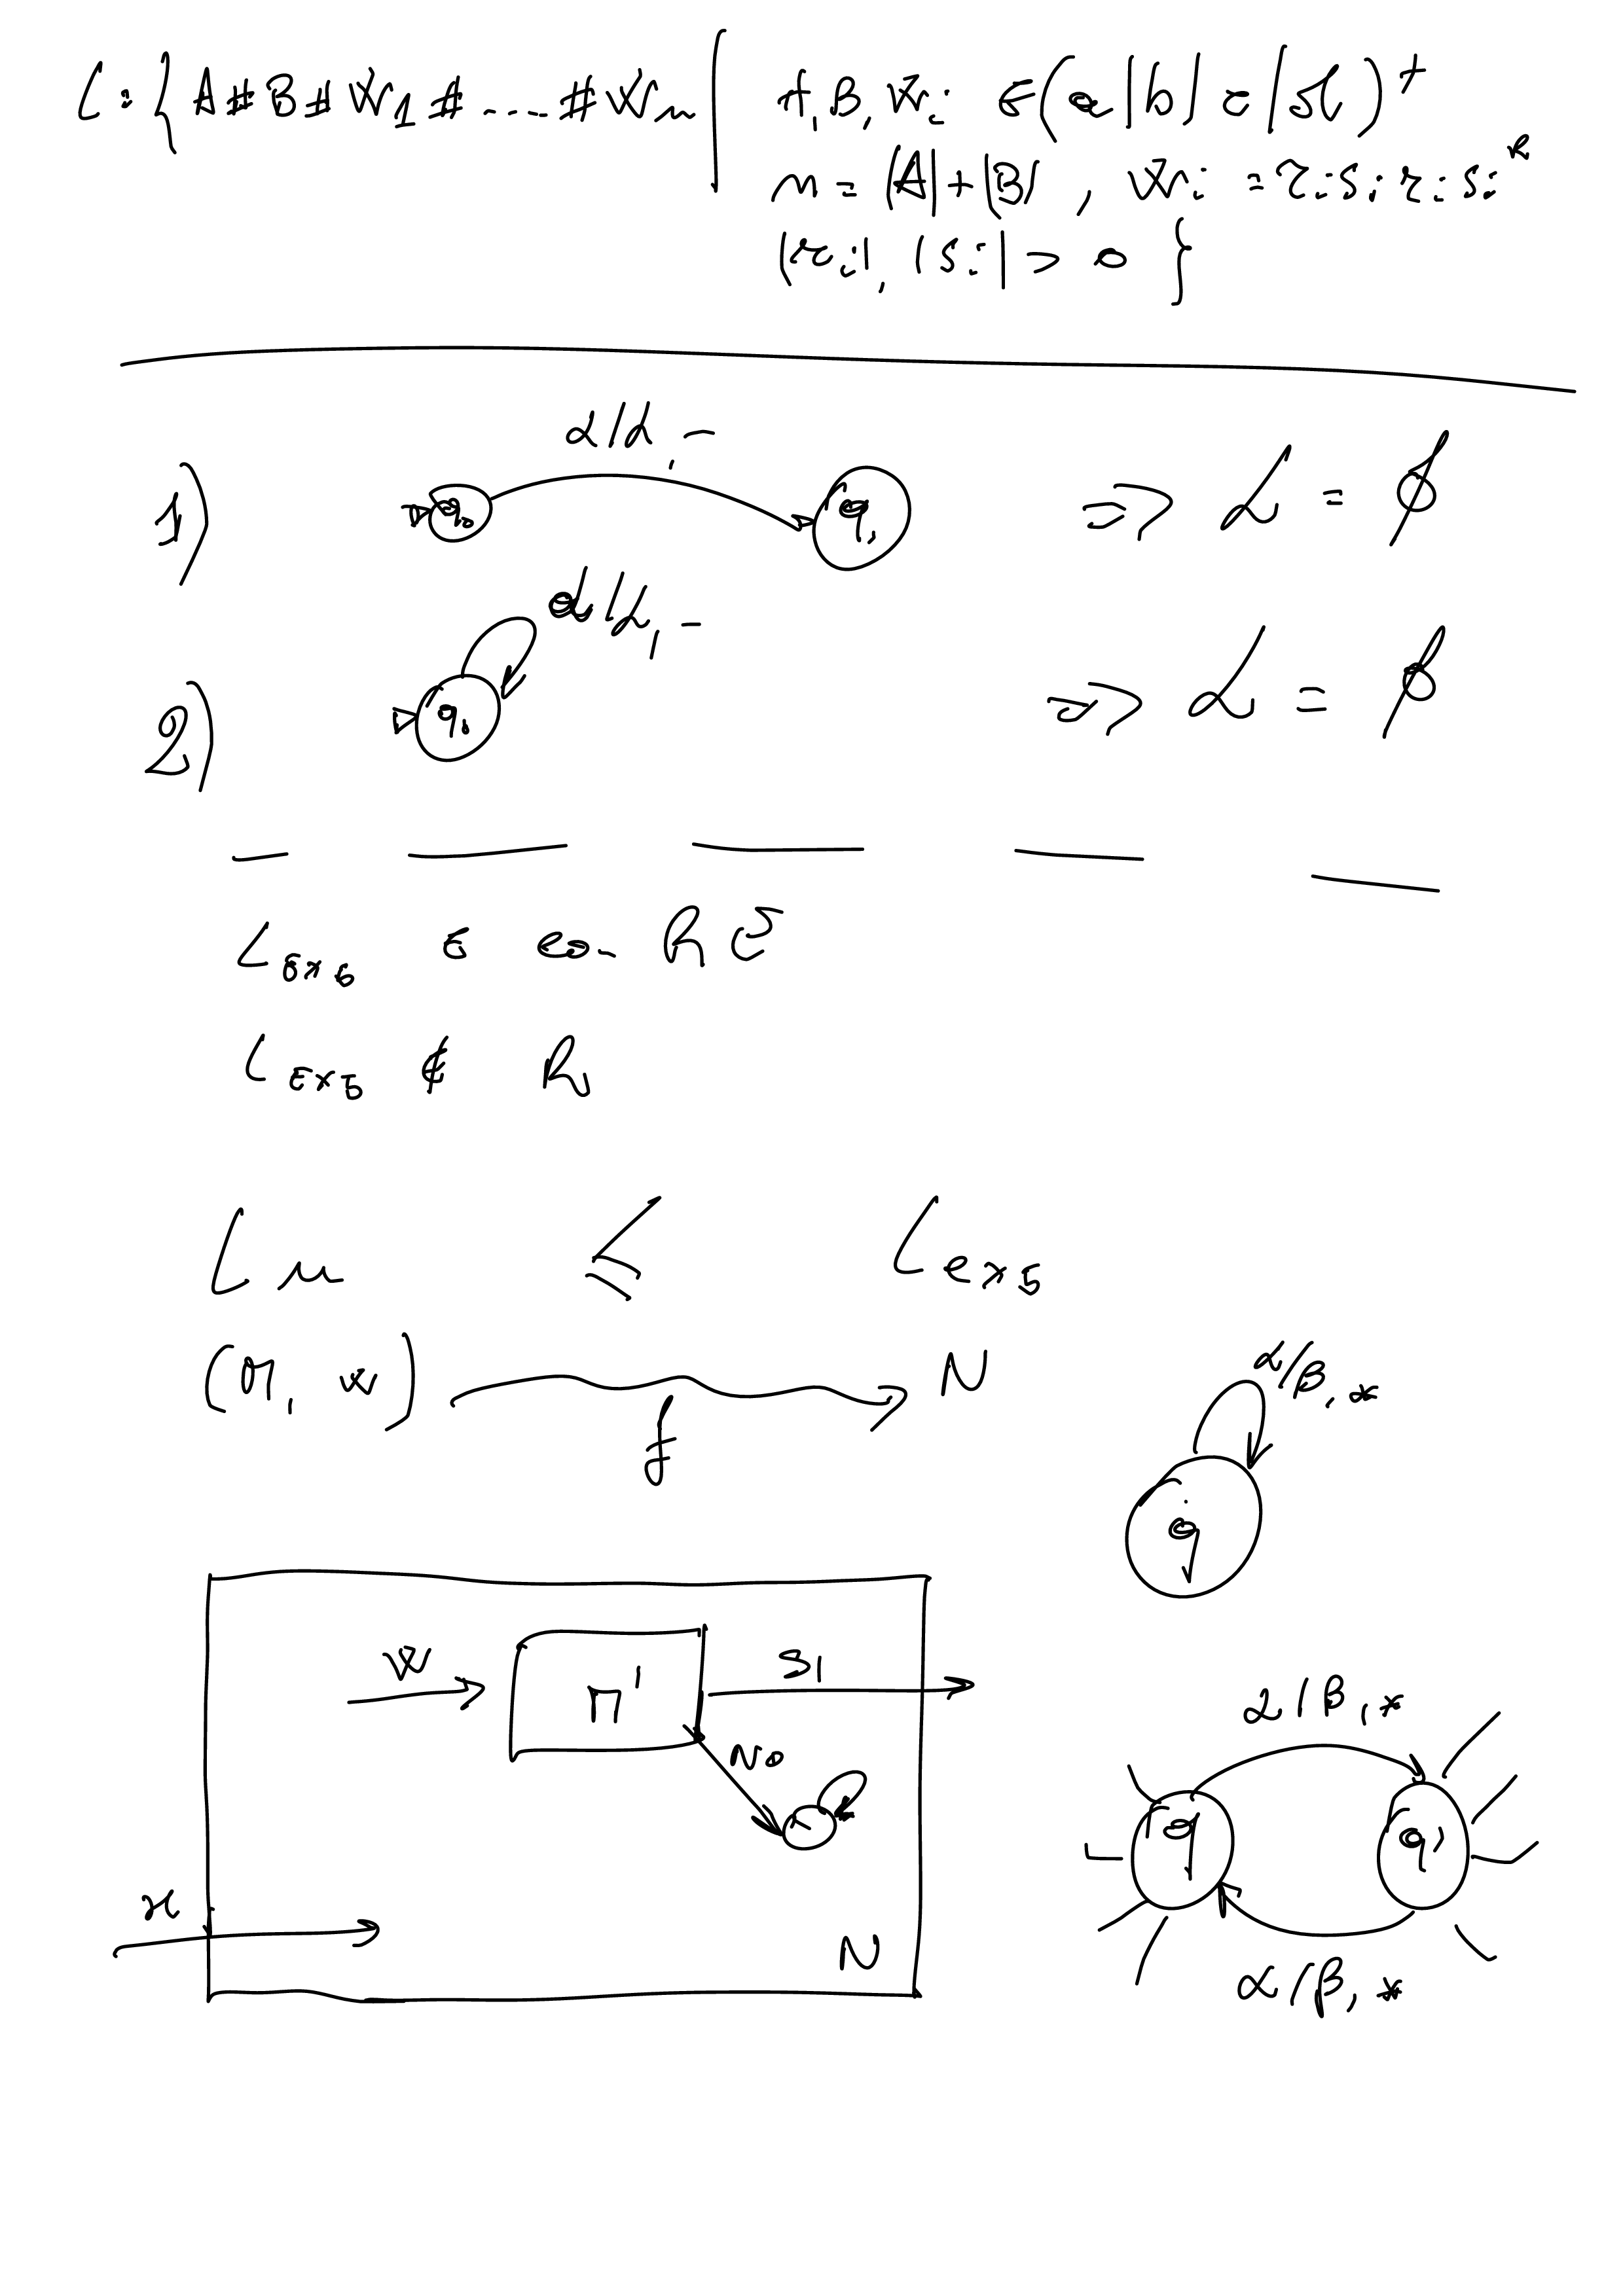 L = { A # B # W1 # .... # Wn | A, B, Wi ∈ (a|b|c|d)+
n = |A| + |B| , Wi = ri si ri si^R
|ri|, |si| > 0 }
1) q0 α/α, – q1 ⇒ L = ∅
2) q0 α/α, – ⇒ L = ∅
L EX5 è co- RE
L EX5 ∉ R
Lu ≤ L ex5
(M, w) f N
α/β, *
q
W M' SI
NO
α/β, *
q q'
x N
α/β, *